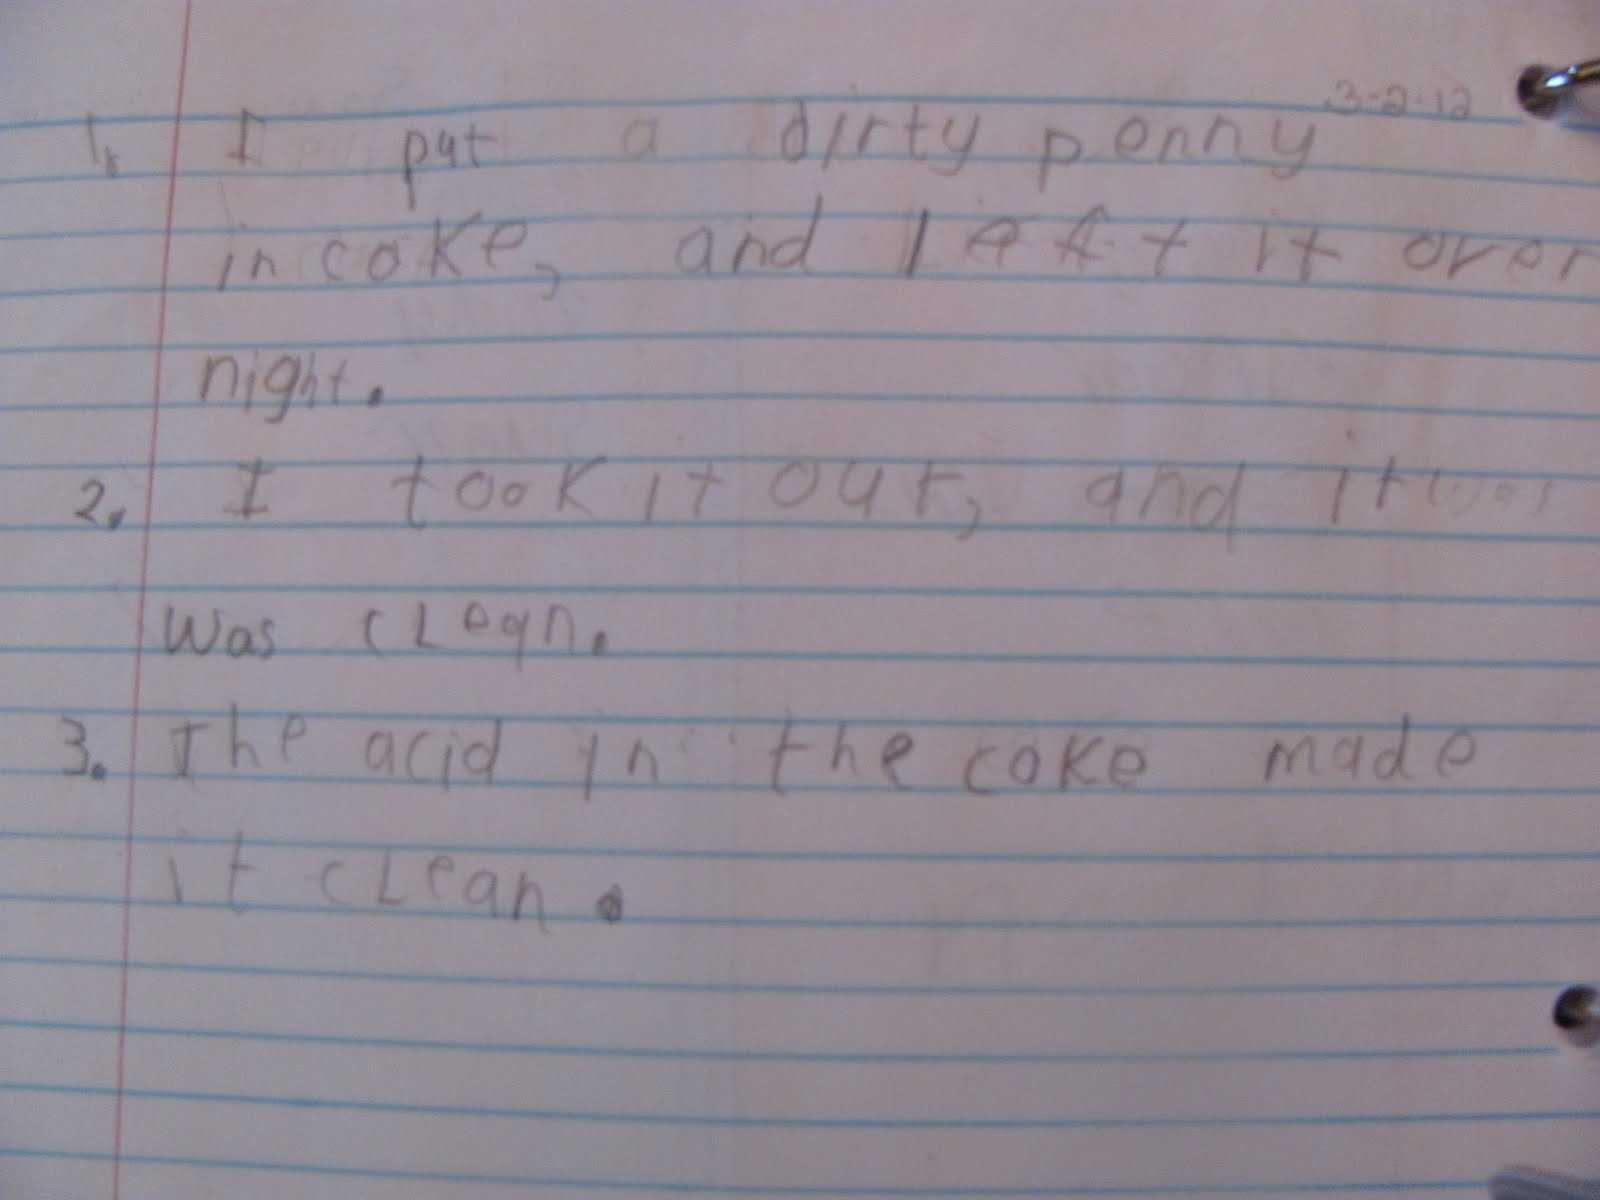 3-2-12
1. I put a dirty penny
in coke, and left it over
night.
2. I took it out, and it
was clean.
3. The acid in the coke made
it clean.